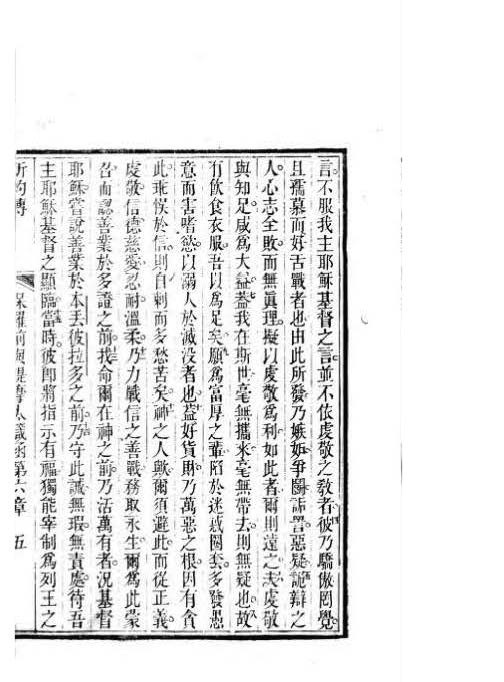 言。不服我主耶穌基督之言。並不依虔敬之教者。彼乃驕傲罔覺。
且孺慕而好古戰者也。由此所發乃嫉妬爭鬭詬詈惡疑。詭辯之
人。心志全敗。而無眞理。擬以虔敬爲利。如此者爾則遠之。夫虔敬
與知足。咸爲大益。蓋我在斯世毫無攜來。毫無帶去。則無疑也。故
有飲食衣服。吾以爲足矣。願爲富厚之輩。陷於迷惑圈套。多發愚
意而害嗜慾。以溺人於滅没者也。蓋好貨財乃萬惡之根。因有貪
此。乖悞於信。則自刺而多愁苦矣。神之人歟。爾須避此。而從正義
虔敬信德慈愛忍耐溫柔。乃力戰信之善戰。務取永生。爾爲此蒙
召。而認善業於多證之前。我命爾在神之前。乃活萬有者。況基督
耶穌嘗說善業於本丟彼拉多之前。乃守此誡。無瑕無責。處待吾
主耶穌基督之顯臨。當時。彼卽將指示有福獨能宰制。爲列王之
保羅前與提摩太議函第六章 五